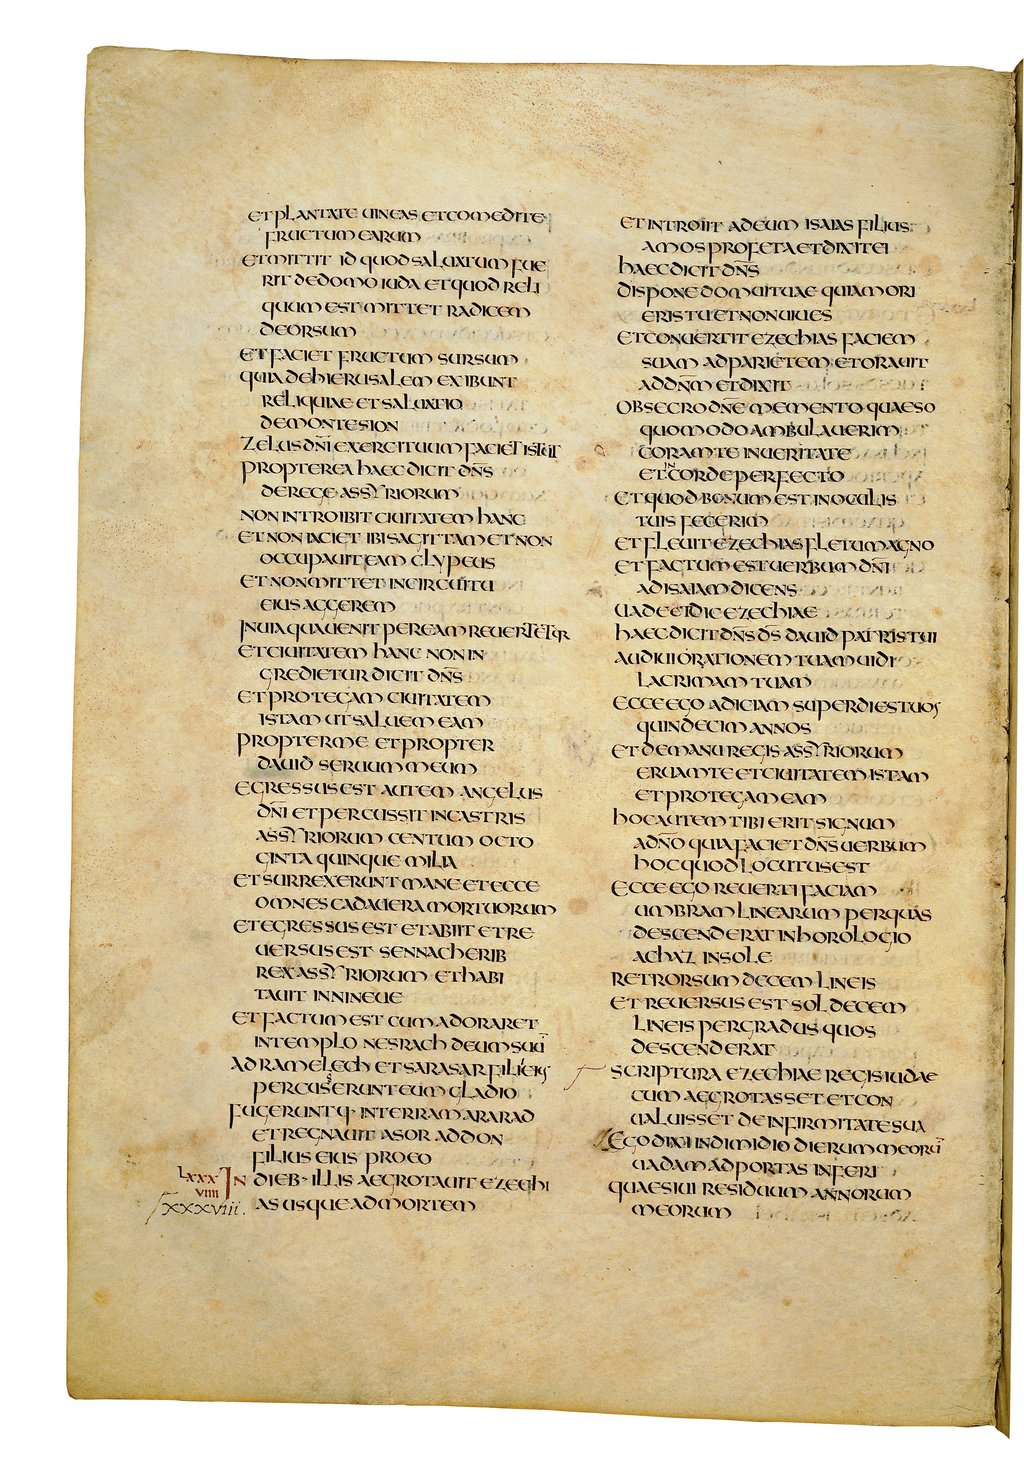 ET PLANTATE UINEAS ET COMEDITE
FRUCTUM EARUM
ET MITTIT ID QUOD SALUATUM FUE
RIT DE DOMO IUDA ET QUOD RELI
QUUM EST MITTET RADICEM
DEORSUM
ET FACIET FRUCTUM SURSUM
QUIA DE HIERUSALEM EXIBUNT
RELIQUIAE ET SALUATIO
DE MONTE SION
ZELUS DN̄I EXERCITUUM FACIET ISTUT
PROPTEREA HAEC DICIT DN̄S
DE REGE ASSYRIORUM
NON INTROIBIT CIUITATEM HANC
ET NON IACIET IBI SAGITTAM ET NON
OCCUPAUIT EAM CLYPEUS
ET NON MITTET IN CIRCUITU
EIUS AGGEREM
IN UIA QUA UENIT PER EAM REUERTETUR
ET CIUITATEM HANC NON IN
GREDIETUR DICIT DN̄S
ET PROTEGAM CIUITATEM
ISTAM UT SALUEM EAM
PROPTER ME ET PROPTER
DAUID SERUUM MEUM
EGRESSUS EST AUTEM ANGELUS
DN̄I ET PERCUSSIT IN CASTRIS
ASSYRIORUM CENTUM OCTO
GINTA QUINQUE MILIA
ET SURREXERUNT MANE ET ECCE
OMNES CADAUERA MORTUORUM
ET EGRESSUS EST ET ABIIT ET RE
UERSUS EST SENNACHERIB
REX ASSYRIORUM ET HABI
TAUIT IN NINEUE
ET FACTUM EST CUM ADORARET
IN TEMPLO NESRACH DEUM SUŪ
ADRAMELECH ET SARASAR FILII EIUS
PERCUSSERUNT EUM GLADIO
FUGERUNTQ· IN TERRAM ARARAD
ET REGNAUIT ASORADDON
FILIUS EIUS PRO EO
LXXX
UIIII
IN DIEB· ILLIS AEGROTAUIT EZECHI
XXXVIII.
AS USQUE AD MORTEM
ET INTROIIT AD EUM ISAIAS FILIUS
AMOS PROFETA ET DIXIT EI
HAEC DICIT DN̄S
DISPONE DOMUI TUAE QUIA MORI
ERIS TU ET NON UIUES
ET CONUERTIT EZECHIAS FACIEM
SUAM AD PARIETEM ET ORAUIT
AD DN̄M ET DIXIT
OBSECRO DN̄E MEMENTO QUAESO
QUOMODO AMBULAUERIM
CORAM TE IN UERITATE
ET IN CORDE PERFECTO
ET QUOD BONUM EST IN OCULIS
TUIS FECERIM
ET FLEUIT EZECHIAS FLETU MAGNO
ET FACTUM EST UERBUM DN̄I
AD ISAIAM DICENS
UADE ET DIC EZECHIAE
HAEC DICIT DN̄S D̄S DAUID PATRIS TUI
AUDIUI ORATIONEM TUAM UIDI
LACRIMAM TUAM
ECCE EGO ADICIAM SUPER DIES TUOS
QUINDECIM ANNOS
ET DE MANU REGIS ASSYRIORUM
ERUAM TE ET CIUITATEM ISTAM
ET PROTEGAM EAM
HOC AUTEM TIBI ERIT SIGNUM
A DN̄O QUIA FACIET DN̄S UERBUM
HOC QUOD LOCUTUS EST
ECCE EGO REUERTI FACIAM
UMBRAM LINEARUM PER QUAS
DESCENDERAT IN HOROLOGIO
ACHAZ IN SOLE
RETRORSUM DECEM LINEIS
ET REUERSUS EST SOL DECEM
LINEIS PER GRADUS QUOS
DESCENDERAT
SCRIPTURA EZECHIAE REGIS IUDAE
CUM AEGROTASSET ET CON
UALUISSET DE INFIRMITATE SUA
EGO DIXI IN DIMIDIO DIERUM MEORŪ
UADAM AD PORTAS INFERI
QUAESIUI RESIDUUM ANNORUM
MEORUM